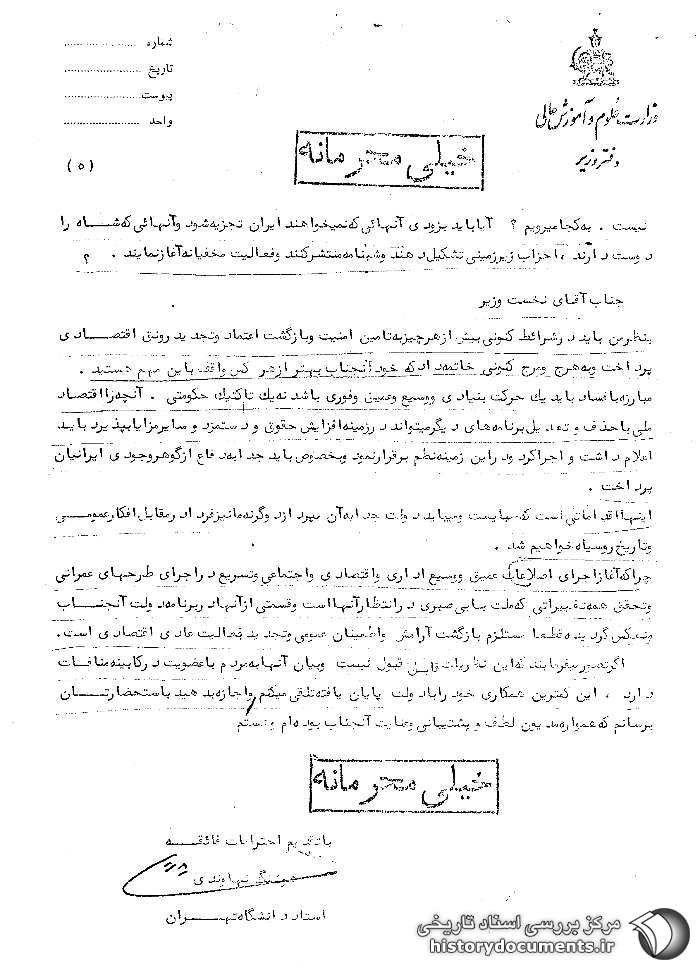 شماره
تاریخ
پیوست
واحد
وزارت علوم و آموزش عالی
دفتر وزیر
خیلی محرمانه
(٥)
نیست . به کجا میرویم ؟ آیا باید بزودی آنهائی که نمیخواهند ایران تجزیه شود و آنهائی که شاه را
دوست دارند ، احزاب زیرزمینی تشکیل دهند و شبنامه منتشر کنند و فعالیت مخفیانه آغاز نمایند . ؟
جناب آقای نخست وزیر
بنظر من باید در شرائط کنونی بیش از هر چیز به تامین امنیت و بازگشت اعتماد و تجدید رونق اقتصادی
پرداخت و به هرج و مرج کنونی خاتمه داد که خود آنجناب بهتر از هر کس واقف باین مهم هستید .
مبارزه با فساد باید یك حرکت بنیادی و وسیع و عمیق و فوری باشد نه یك تاکتیك حکومتی . آنچه را اقتصاد
ملی با حذف و تعدیل برنامه های دیگر میتواند در زمینه افزایش حقوق و دستمزد و سایر مزایا بپذیرد باید
اعلام داشت و اجرا کرد و در این زمینه نظم برقرار نمود و بخصوص باید جدا به دفاع از گوهر وجودی ایرانیان
پرداخت .
اینها اقداماتی است که میبایست و میباید دولت جدا به آن بپردازد وگرنه ما نیز فردا در مقابل افکار عمومی
و تاریخ روسیاه خواهیم شد .
چرا که آغاز اجرای اصلاحات عمیق و وسیع اداری و اقتصادی و اجتماعی و تسریع در اجرای طرحهای عمرانی
و تحقق همه تغییراتی که ملت با بی صبری در انتظار آنها است و قسمتی از آنها در برنامه دولت آنجناب
منعکس گردیده قطعا مستلزم بازگشت آرامش و اطمینان عمومی و تجدید فعالیت عادی اقتصادی است .
اگر تصور میفرمایند که این نظریات قابل قبول نیست و بیان آنها به مردم با عضویت در کابینه منافات
دارد ، این کمترین همکاری خود را با دولت پایان یافته تلقی میکنم و اجازه بدهید باستحضارتان
برسانم که همواره مدیون لطف و پشتیبانی و عنایت آنجناب بوده ام و هستم
خیلی محرمانه
با تقدیم احترامات فائقه
هوشنگ نهاوندی
استاد دانشگاه تهران
مرکز بررسی اسناد تاریخی
historydocuments.ir